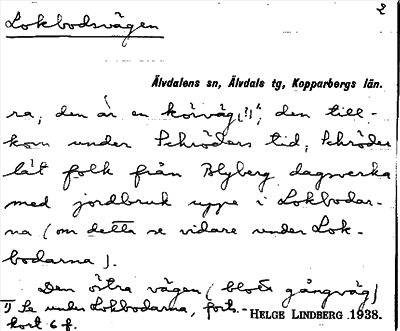 2
Lokbodsvägen
Älvdalens sn, Älvdals tg, Kopparbergs län.
ra, den är en körväg,¹) "; den till-
kom under Schröders tid; Schröder
lät folk från Blyberg dagsverka
med jordbruk uppe i Lokbodar-
na (om detta se vidare under Lok-
bodarna).
Den östra vägen (blott gångväg)
1) Se under Lokbodarna, forts.- HELGE LINDBERG 1938.
kort 6 f.